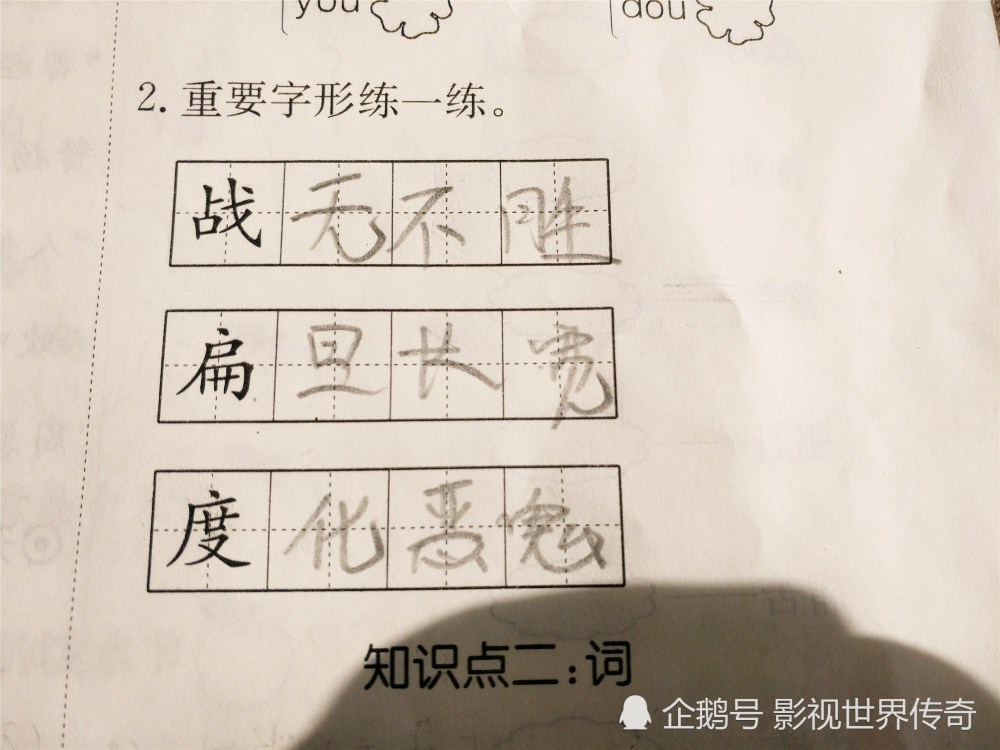 you dou
2. 重要字形练一练。
战无不胜
扁旦长宽
度化恶
知识点二:词
企鹅号 影视世界传奇